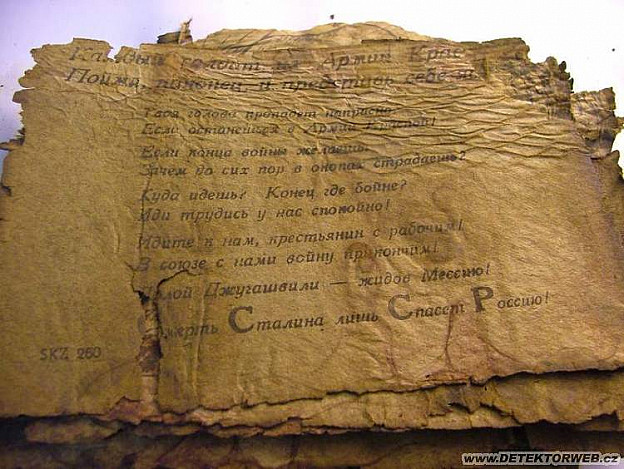 солдат из Армии Крас
Пойми, наконец и представь себе
Твоя голова пропадет напрасно
Если останешься в Армии Красной!
Если конца войны желаешь,
Зачем до сих пор в окопах страдаешь?
Куда идешь? Конец где бойне?
Иди трудись у нас спокойно!
Идите к нам, крестьянин с рабочим!
В союзе с нами войну прикончим!
Долой Джугашвили — жидов Мессию!
Смерть Сталина лишь Спасет Россию!
SKZ 260
www.DETEKTORWEB.cz